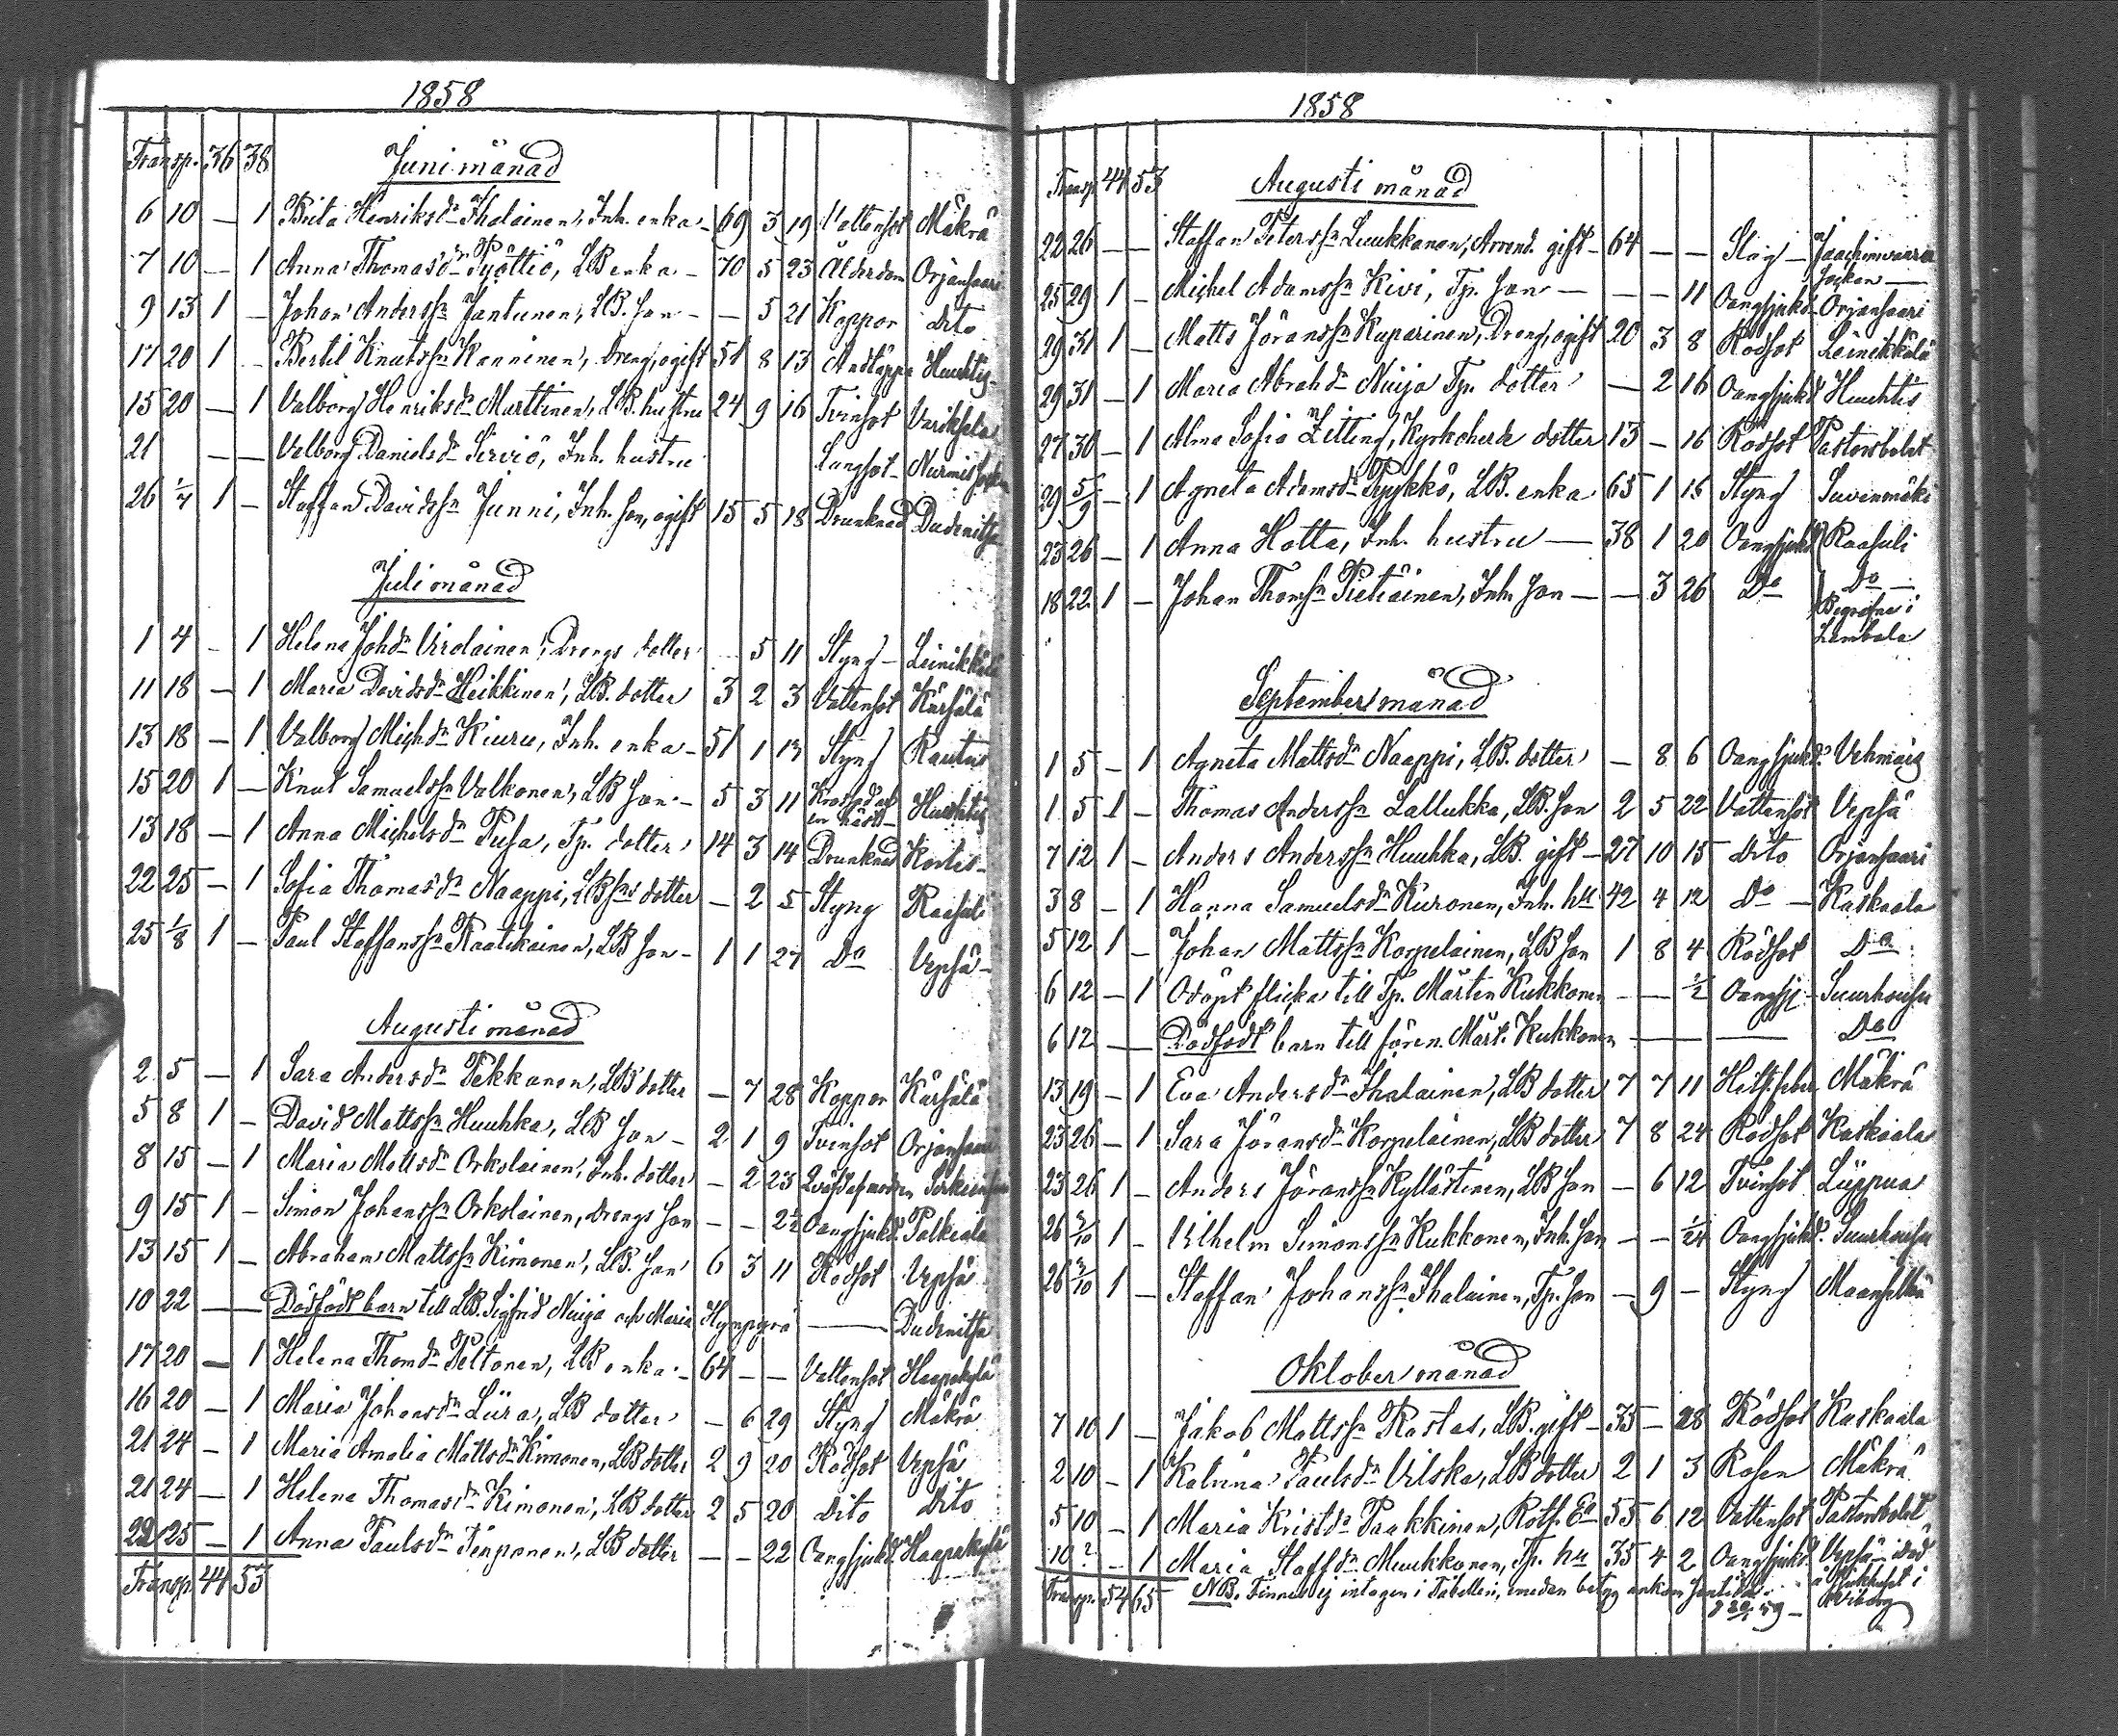 1858
Transp. 36 38 Juni månad
6 10 — 1 Brita Henriksdr Ihalainen, Inh. enka — 69 3 19 Vattensot Mäkrä
7 10 — 1 Anna Thomasdr Pyöttiö, LB enka — 70 5 23 Ålderdom Orjansaari
9 13 1 — Johan Anderssn Jantunen, LB. son — — 5 21 Koppor dito
17 20 1 — Bertil Knutssn Kanninen, dreng, ogift 51 8 13 Andtäppa Huuhtis
15 20 — 1 Valborg Henriksdr Marttinen, LB. hustru 24 9 16 Tvinsot Varikselä
21 — — Valborg Danielsdr Serviö, Inh. hustru Lungsot
26 1/7 1 — Staffan Davidssn Junni, Inh. son, ogift 15 5 18 Drunknad Dudenitsa
Juli månad
1 4 — 1 Helena Johdr Virolainen, Drengs dotter — 5 11 Styng — Leinikkälä
11 18 — 1 Maria Davidsdr Heikkinen, LB. dotter 3 2 3 Vattensot Kärsälä
13 18 — 1 Valborg Michdr Kiuru, Inh. enka — 51 1 17 Styng Rautus
15 20 1 — Knut Samuelssn Valkonen, LB son — 5 3 11 Krossad af en häst — Huuhtis
13 18 — 1 Anna Michelsdr Pusa, Tp. dotter 14 3 14 Drunknad Kortis —
22 25 — 1 Sofia Thomasdr Naappi, LB sns dotter — 2 5 Styng Raasuli
25 1/8 1 — Paul Staffanssn Raatikainen, LB son — 1 1 27 Do Vepsä —
Augusti månad
2 5 — 1 Sara Andersdr Pekkanen, LB dotter — 7 28 Koppor Kärsälä
5 8 1 — David Mattssn Huuhka, LB son — 2 1 9 Tvinsot Orjansaari
8 15 — 1 Maria Mattsdr Orkolainen, Inh. dotter — 2 23 Qväfd af modren
9 15 1 — Simon Johanssn Orkolainen, drengs son — — 2½ Oangsjukd. Palkeala
13 15 1 — Abraham Mattssn Kimonen, LB. son 6 3 11 Rödsot Vepsä
10 22 — — Dödfödt barn till LB. Sigfrid Nuija och Maria Hyppyrä — Dudenitsa
17 20 — 1 Helena Thomdr Peltonen, LB enka — 64 — — Vattensot Haapakylä
16 20 — 1 Maria Johansdr Lüra, LB dotter — 6 29 Styng Mäkrä
21 24 — 1 Maria Amalia Mattsdr Kimonen, LB dotter 2 9 20 Rödsot Vepsä
21 24 — 1 Helena Thomasdr Kimonen, LB dotter 2 5 20 Dito Dito
22 25 — 1 Anna Paulsdr Tenponen, LB dotter — — 22 Oangsjukd. Haapakylä
Transp. 44 53
1858
Transp. 44 53 Augusti månad
22 26 — — Staffan Peterssn Luukkanen, Arrend. gift — 64 — — Slag — Jaachimvaara Socken —
25 29 1 — Michel Adamssn Kivi, Tp. son — — — 11 Oangsjukd. Orjansaari
29 31 1 — Matts Jöranssn Kuparinen, Dreng, ogift 20 3 8 Rödsot Leinikkälä
29 31 — 1 Maria Abrahdr Nuija Tp. dotter — 2 16 Oangsjukd. Huuhtis
27 30 — 1 Alma Sofia Zitting, Kyrkoherde dotter 13 — 16 Rödsot Pastorsbolet
29 5/9 — 1 Agneta Adamsdr Pyykkö, LB. enka 65 1 15 Styng Suvenmäki
23 26 — 1 Anna Hatta, Inh. hustru — 38 1 20 Oangsjukd. Raasuli
18 22 1 — Johan Thomsn Pietiäinen, Inh. son — — 3 26 Do Do — Begrafne i Lembala
September månad
1 5 — 1 Agneta Mattsdr Naappi, LB. dotter — 8 6 Oangsjukd. Vehmais
1 5 1 — Thomas Anderssn Lallukka, LB. son 2 5 22 Vattensot Vepsä
7 12 1 — Anders Anderssn Huuhka, LB. gift — 27 10 15 dito Orjansaari
3 8 — 1 Hanna Samuelsdr Kuronen, Inh. hu 42 4 12 Do — Kaskaala
5 12 1 — Johan Mattssn Korpelainen, LB son 1 8 4 Rödsot Do
6 12 — 1 Odöpt flicka till Tp. Mårten Kukkonen — — ½ Oangsj. Suurhousu
6 12 — — Dödfödt barn till fören. Mårt. Kukkonen — — Do
13 19 — 1 Eva Andersdr Ihalainen, LB dotter 7 7 11 Hetsfeber Mäkrä
23 26 — 1 Sara Jöransdr Korpelainen, LB dotter 7 8 24 Rödsot Kaskaala
23 26 1 — Anders Jöranssn Kyllästinen, LB son — 6 12 Tvinsot Lüppua
26 3/10 1 — Vilhelm Simonssn Kukkonen, Inh. son — — 1/24 Oangsjukd. Suurhousu
26 3/10 1 — Staffan Johanssn Ihalainen, Tp. son — 9 — Styng Maanselkä
Oktober månad
7 10 1 — Jakob Mattssn Rastas, LB. gift — 35 — 28 Rödsot Kaskaala
2 10 — 1 Katrina Paulsdr Vilska, LB dotter 2 1 3 Rosen Mäkrä
5 10 — 1 Maria Kristdr Paakkinen, Roth. Ea 55 6 12 Vattensot Pastorsbolet
10 ? — 1 Maria Staffdr Muukkonen, Tp. hu 35 4 2 Oangsjukd. Vepsä — död å Sjukhuset i Viborg
Transp. 54 65 NB. Finnes ej intagen i Tabellen, emedan betyg ankom 59 —